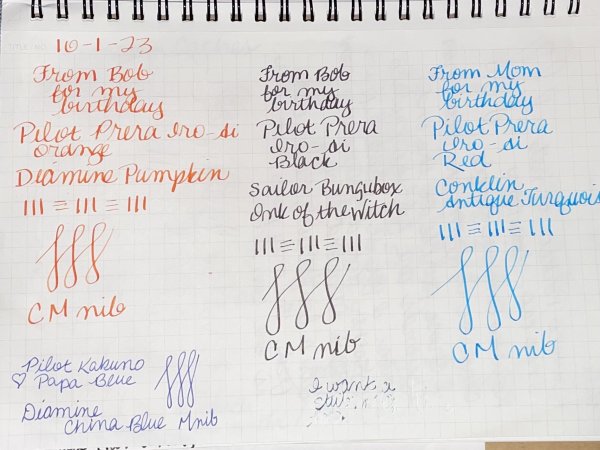 TITLE / NO.
10-1-23
From Bob
for my
birthday
Pilot Prera Iro-si
orange
Diamine Pumpkin
CM nib
From Bob
for my
birthday
Pilot Prera
Iro-si
Black
Sailor Bungubox
Ink of the Witch
CM nib
From Mom
for my
birthday
Pilot Prera
Iro-si
Red
Conklin
Antique Turquois
CM nib
Pilot Kakuno
♡ Papa Blue
Diamine
China Blue M nib
I want a